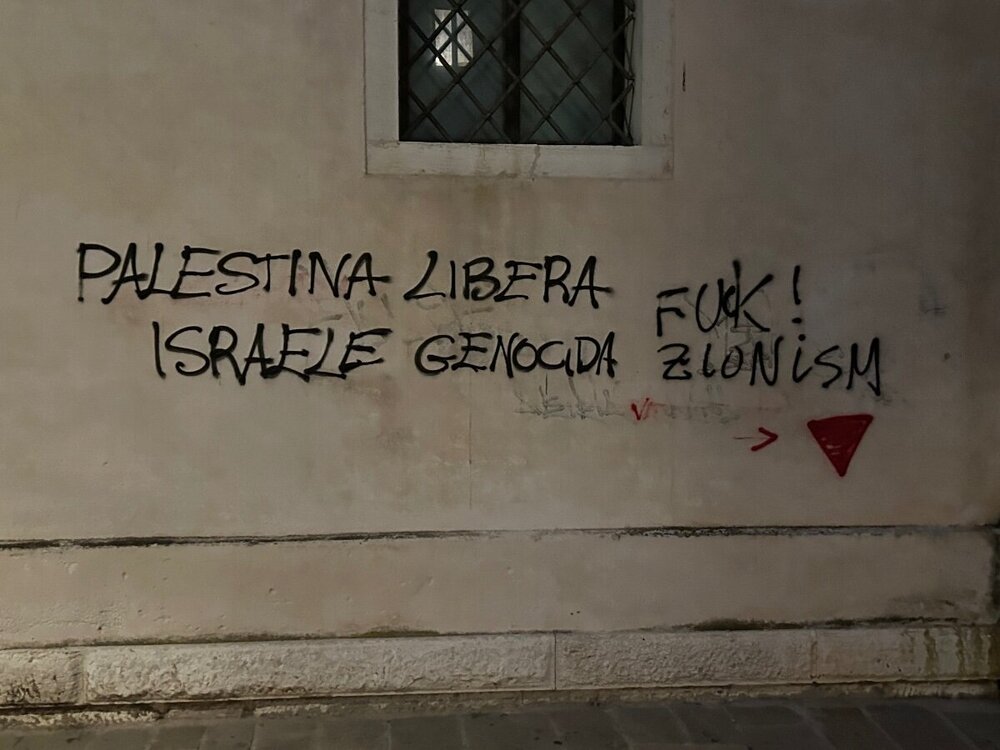 PALESTINA LIBERA
ISRAELE GENOCIDA
FUCK!
ZIONiSM